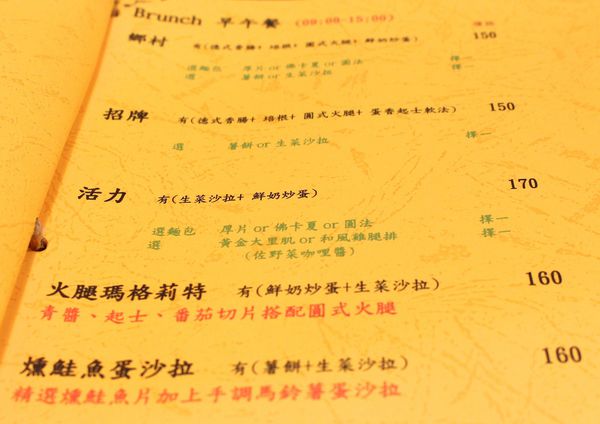 Brunch 早午餐 (09:00-15:00)
鄉村 有(德式香腸+ 培根+ 圓式火腿+ 鮮奶炒蛋) 150
選麵包 厚片 or 佛卡夏 or 圓法 擇一
選 薯餅 or 生菜沙拉 擇一
招牌 有(德式香腸+ 培根+ 圓式火腿+ 蛋香起士軟法) 150
選 薯餅 or 生菜沙拉 擇一
活力 有(生菜沙拉+ 鮮奶炒蛋) 170
選麵包 厚片 or 佛卡夏 or 圓法 擇一
選 黃金大里肌 or 和風雞腿排 擇一
(佐野菜咖哩醬)
火腿瑪格莉特 有(鮮奶炒蛋+生菜沙拉) 160
青醬、起士、番茄切片搭配圓式火腿
燻鮭魚蛋沙拉 有(薯餅+生菜沙拉) 160
精選燻鮭魚片加上手調馬鈴薯蛋沙拉